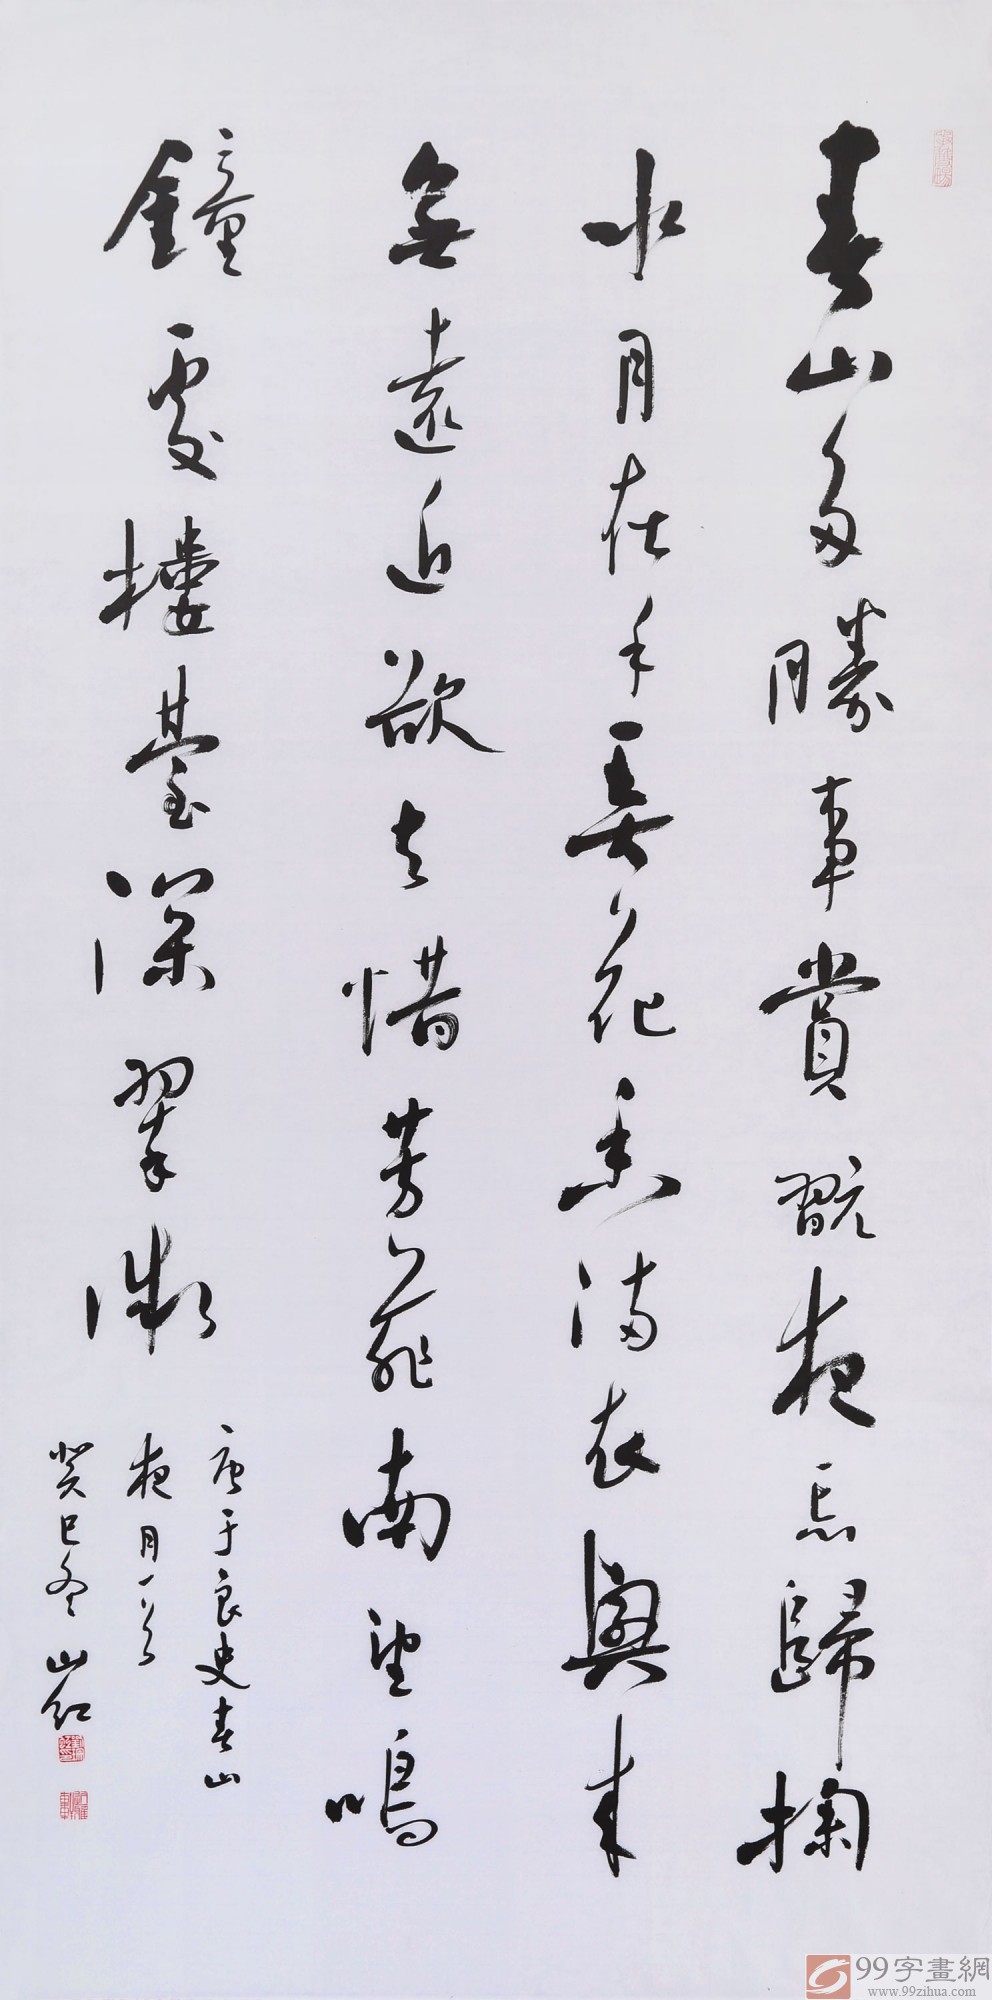 春山多勝事賞翫夜忘歸掬
水月在手弄花香滿衣興來
無遠近欲去惜芳菲南望鳴
鐘處樓臺深翠微
唐于良史春山
夜月一首
癸巳冬山红
99字畫網
www.99zihua.com